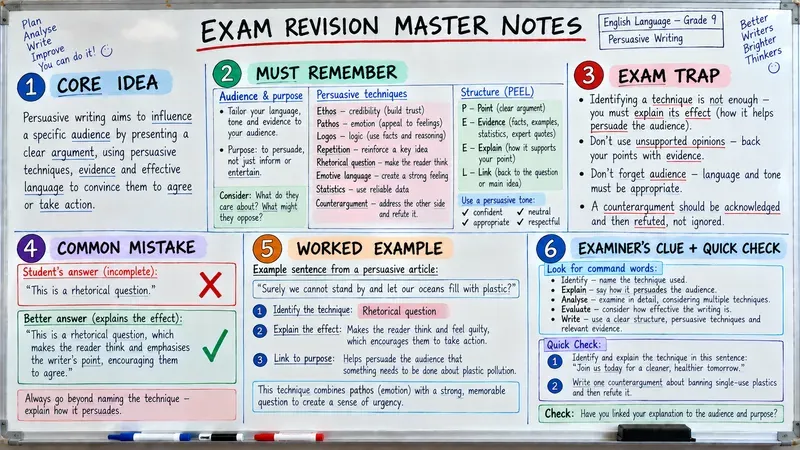 Plan
Analyse
Write
Improve
You can do it!
EXAM REVISION MASTER NOTES
English Language – Grade 9
Persuasive Writing
Better
Writers
Brighter
Thinkers
1 CORE IDEA
Persuasive writing aims to influence
a specific audience by presenting a
clear argument, using persuasive
techniques, evidence and effective
language to convince them to agree
or take action.
2 MUST REMEMBER
Audience & purpose
• Tailor your language,
tone and evidence to
your audience.
• Purpose: to persuade,
not just inform or
entertain.
Consider: What do they
care about? What might
they oppose?
Persuasive techniques
Ethos – credibility (build trust)
Pathos – emotion (appeal to feelings)
Logos – logic (use facts and reasoning)
Repetition – reinforce a key idea
Rhetorical question – make the reader think
Emotive language – create a strong feeling
Statistics – use reliable data
Counterargument – address the other side
and refute it.
Structure (PEEL)
P – Point (clear argument)
E – Evidence (facts, examples,
statistics, expert quotes)
E – Explain (how it supports
your point)
L – Link (back to the question
or main idea)
Use a persuasive tone:
✓ confident ✓ neutral
✓ appropriate ✓ respectful
3 EXAM TRAP
• Identifying a technique is not enough –
you must explain its effect (how it helps
persuade the audience).
• Don't use unsupported opinions – back
your points with evidence.
• Don't forget audience – language and tone
must be appropriate.
• A counterargument should be acknowledged
and then refuted, not ignored.
4 COMMON MISTAKE
Student's answer (incomplete):
"This is a rhetorical question."
Better answer (explains the effect):
"This is a rhetorical question, which
makes the reader think and emphasises
the writer's point, encouraging them
to agree."
Always go beyond naming the technique –
explain how it persuades.
5 WORKED EXAMPLE
Example sentence from a persuasive article:
"Surely we cannot stand by and let our oceans fill with plastic?"
1 Identify the technique: Rhetorical question
2 Explain the effect: Makes the reader think and feel guilty,
which encourages them to take action.
3 Link to purpose: Helps persuade the audience that
something needs to be done about plastic pollution.
This technique combines pathos (emotion) with a strong, memorable
question to create a sense of urgency.
6 EXAMINER'S CLUE + QUICK CHECK
Look for command words:
• Identify – name the technique used.
• Explain – say how it persuades the audience.
• Analyse – examine in detail, considering multiple techniques.
• Evaluate – consider how effective the writing is.
• Write – use a clear structure, persuasive techniques and
relevant evidence.
Quick Check:
1 Identify and explain the technique in this sentence:
"Join us today for a cleaner, healthier tomorrow."
2 Write one counterargument about banning single-use plastics
and then refute it.
Check: Have you linked your explanation to the audience and purpose?